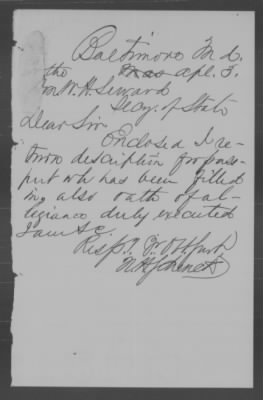 Baltimore Md.
the Mar Apl. 3.
Hon W. H. Seward
Secy. of State
Dear Sir
Enclosed I re-
turn description for pass-
port wh has been filled
in, also oath of al-
legiance duly executed
I am &c.
Respy. Yr Obt